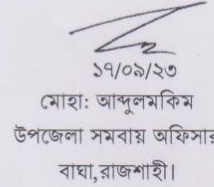 ১৭/০৯/২৩
মোহা: আব্দুলমকিম
উপজেলা সমবায় অফিসার
বাঘা,রাজশাহী।